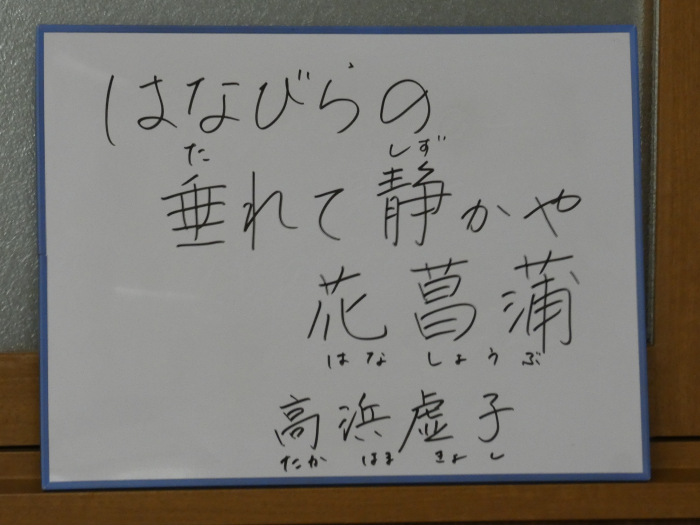 はなびらの
た しず
垂れて静かや
花菖蒲
はなしょうぶ
高浜虚子
たかはまきよし